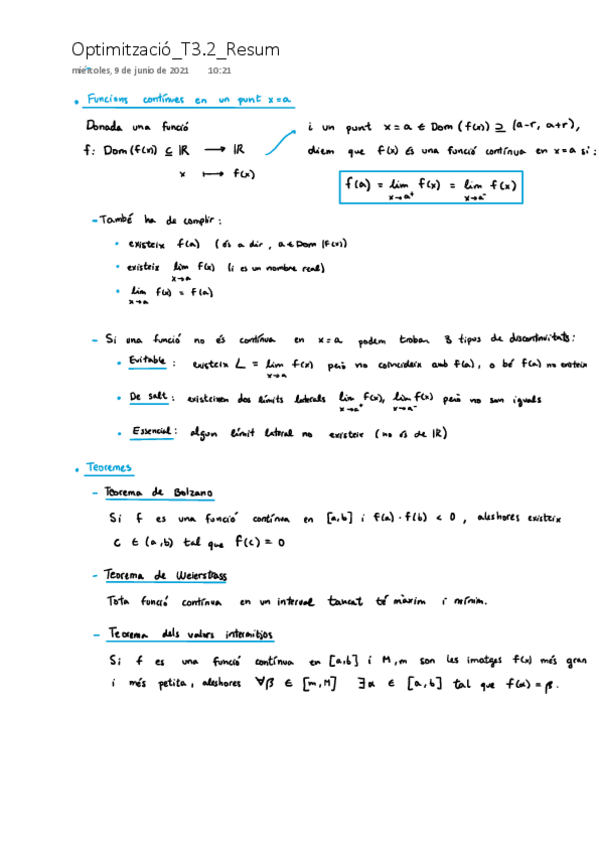 Optimització_T3.2_Resum
miércoles, 9 de junio de 2021 10:21
• Funcions contínues en un punt x=a
Donada una funció
f: Dom (f(x)) ⊆ ℝ ⟶ ℝ
x ⟼ f(x)
i un punt x=a ∈ Dom (f(x)) ⊇ (a-r, a+r),
diem que f(x) és una funció contínua en x=a si:
f(a) = lim x→a⁺ f(x) = lim x→a⁻ f(x)
- També ha de complir:
• existeix f(a) (és a dir, a ∈ Dom (f(x))
• existeix lim x→a f(x) (i es un nombre real)
• lim x→a f(x) = f(a)
- Si una funció no és contínua en x=a podem trobar 3 tipus de discontinuitats:
• Evitable: existeix L = lim x→a f(x) però no coincideix amb f(a), o bé f(a) no existeix
• De salt: existeixen dos límits laterals lim x→a⁺ f(x), lim x→a⁻ f(x) però no son iguals
• Essencial: algun límit lateral no existeix (no és de ℝ)
• Teoremes
- Teorema de Bolzano
Si f es una funció contínua en [a,b] i f(a)·f(b) < 0, aleshores existeix
c ∈ (a,b) tal que f(c) = 0
- Teorema de Weierstass
Tota funció contínua en un interval tancat té màxim i mínim.
- Teorema dels valors intermitjos
Si f es una funció contínua en [a,b] i M,m son les imatges f(x) més gran
i més petita, aleshores ∀β ∈ [m,M] ∃α ∈ [a,b] tal que f(α) = β.